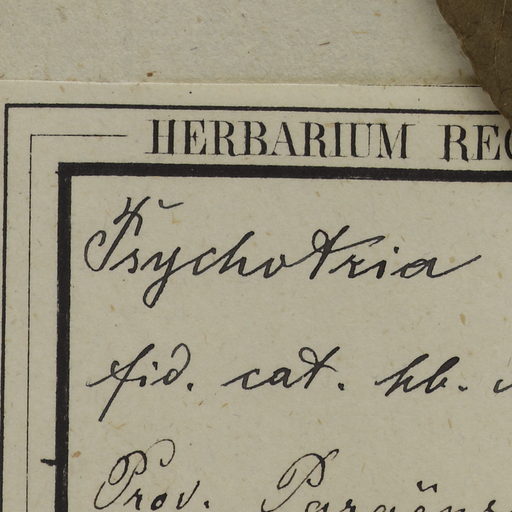 HERBARIUM REG
Psychotria
fid. cat. hb.
Prov.